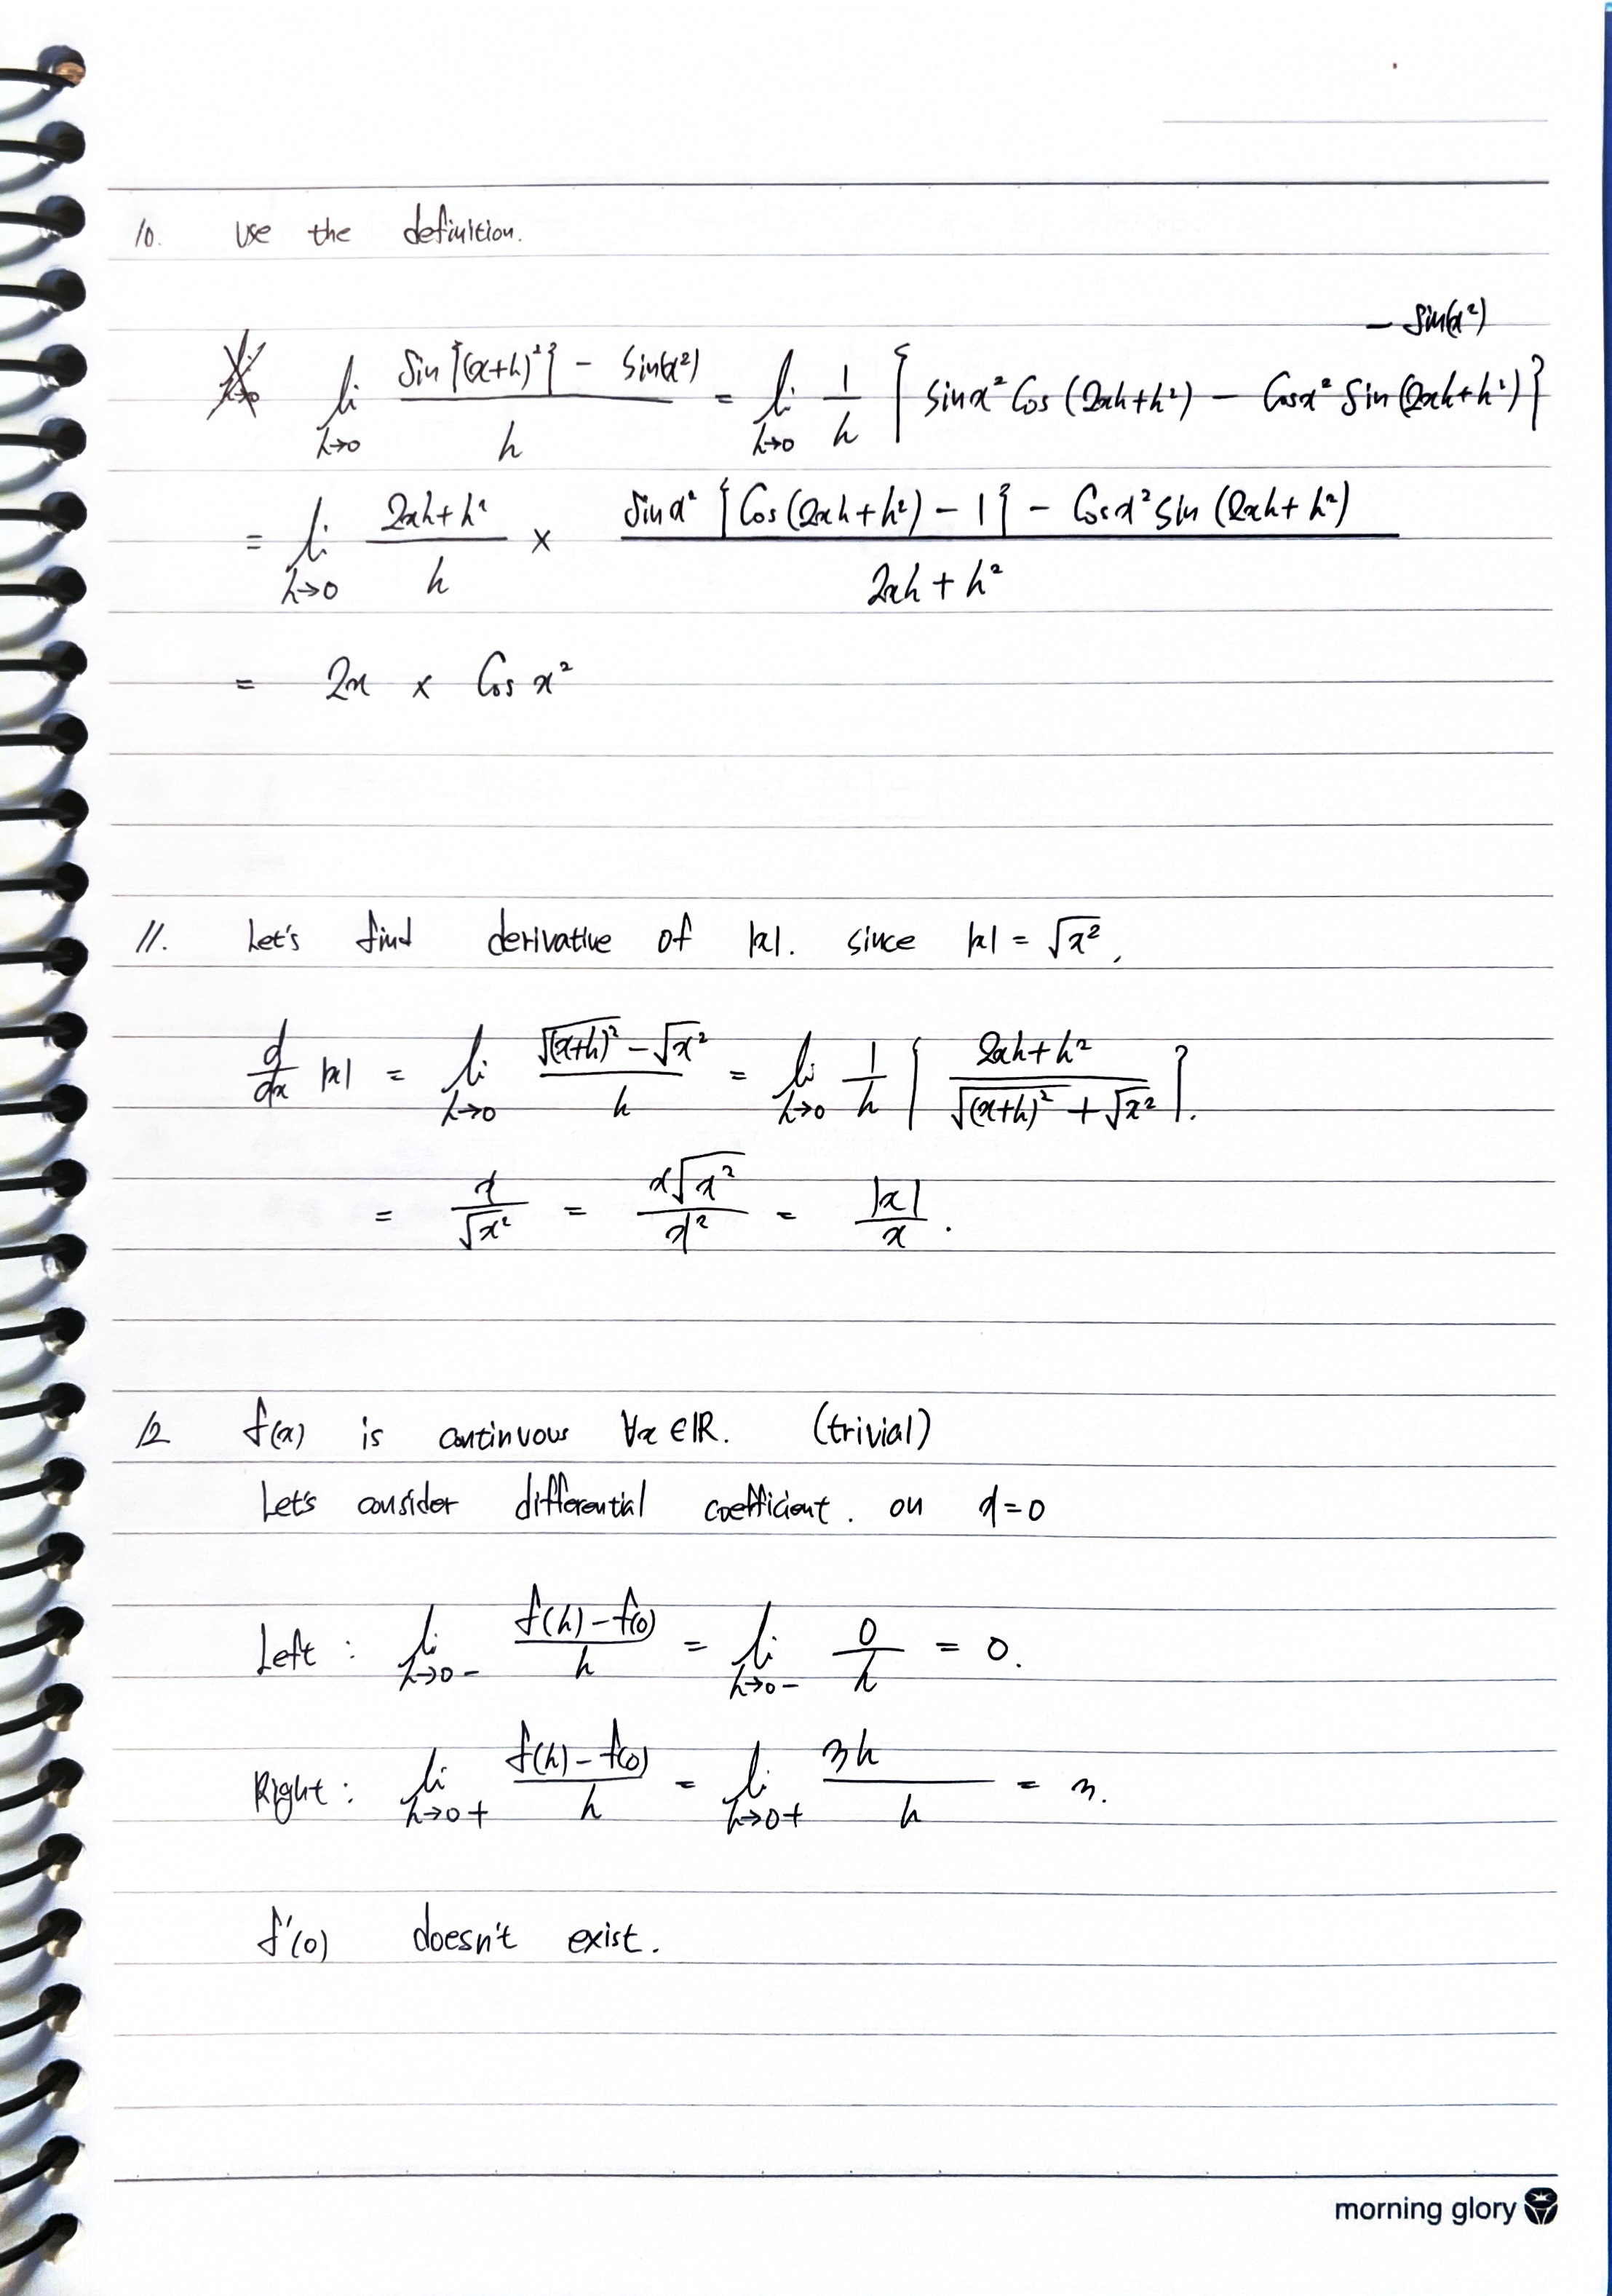 10. Use the definition.
- sin(x²)
lim h→0 (sin{(x+h)²} - sin(x²))/h = lim h→0 1/h { sinx² Cos(2xh+h²) - Cosx² Sin(2xh+h²) }
= lim h→0 (2xh+h²)/h × (sinx² {Cos(2xh+h²) - 1} - Cosx² sin(2xh+h²))/(2xh+h²)
= 2x × Cos x²
11. Let's find derivative of |x|. since |x| = √x²,
d/dx |x| = lim h→0 (√(x+h)² - √x²)/h = lim h→0 1/h { (2xh+h²)/(√(x+h)² + √x²) }.
= x/√x² = x√x²/x² = |x|/x.
12 f(x) is continuous ∀x∈ℝ. (trivial)
Let's consider differential coefficient. on x=0
Left : lim h→0- (f(h)-f(0))/h = lim h→0- 0/h = 0.
Right : lim h→0+ (f(h)-f(0))/h = lim h→0+ 3h/h = 3.
f'(0) doesn't exist.
morning glory